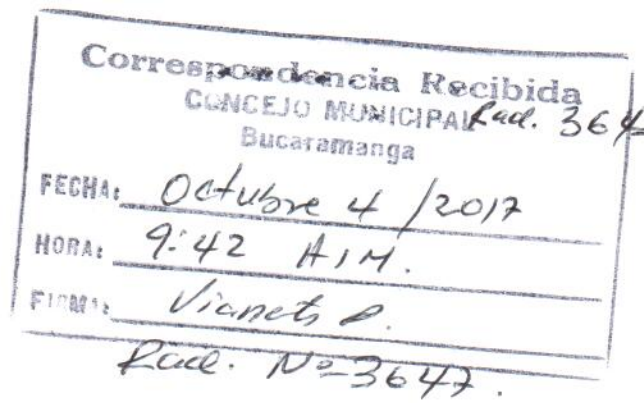 Correspondencia Recibida
CONCEJO MUNICIPAL Rad. 364
Bucaramanga
FECHA: Octubre 4 / 2017
HORA: 9:42 A.M.
FIRMA: Vianeth P.
Rad. Nº 3647.